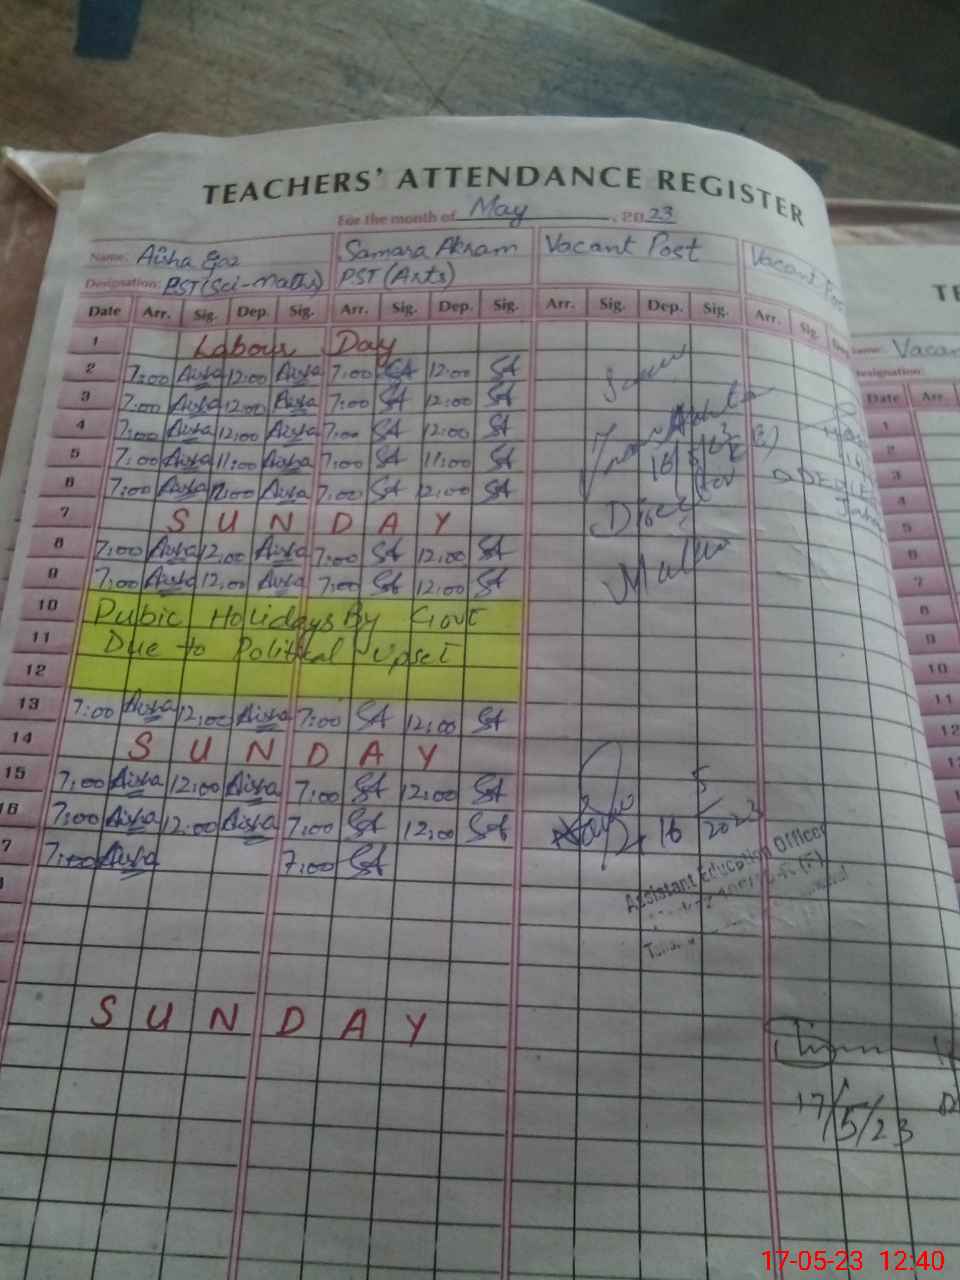 TEACHERS' ATTENDANCE REGISTER
For the month of May, 2023
Name: Aisha Ejaz Samara Akram Vacant Post Vacant Name: Vacan
Designation: PST(Sci-Maths) PST(Arts) Designation:
Date Arr. Sig. Dep. Sig. Arr. Sig. Dep. Sig. Arr. Sig. Dep. Sig. Arr. Sig. Date Arr.
1 Labour Day 1
2 7:00 Aisha 12:00 Aisha 7:00 SA 12:00 SA 2
3 7:00 Aisha 12:00 Aisha 7:00 SA 12:00 SA 3
4 7:00 Aisha 12:00 Aisha 7:00 SA 12:00 SA 4
5 7:00 Aisha 11:00 Aisha 7:00 SA 11:00 SA 5
6 7:00 Aisha 12:00 Aisha 7:00 SA 12:00 SA 6
7 SUNDAY 7
8 7:00 Aisha 12:00 Aisha 7:00 SA 12:00 SA 8
9 7:00 Aisha 12:00 Aisha 7:00 SA 12:00 SA 9
10 Pubic Holidays By Govt 10
11 Due to Political Upset 11
12 12
13 7:00 Aisha 12:00 Aisha 7:00 SA 12:00 SA
14 SUNDAY
15 7:00 Aisha 12:00 Aisha 7:00 SA 12:00 SA
16 7:00 Aisha 12:00 Aisha 7:00 SA 12:00 SA 16/5/2023
7 7:00 Aisha 7:00 SA
Assistant Education Officer
SUNDAY
17/5/23
17-05-23 12:40